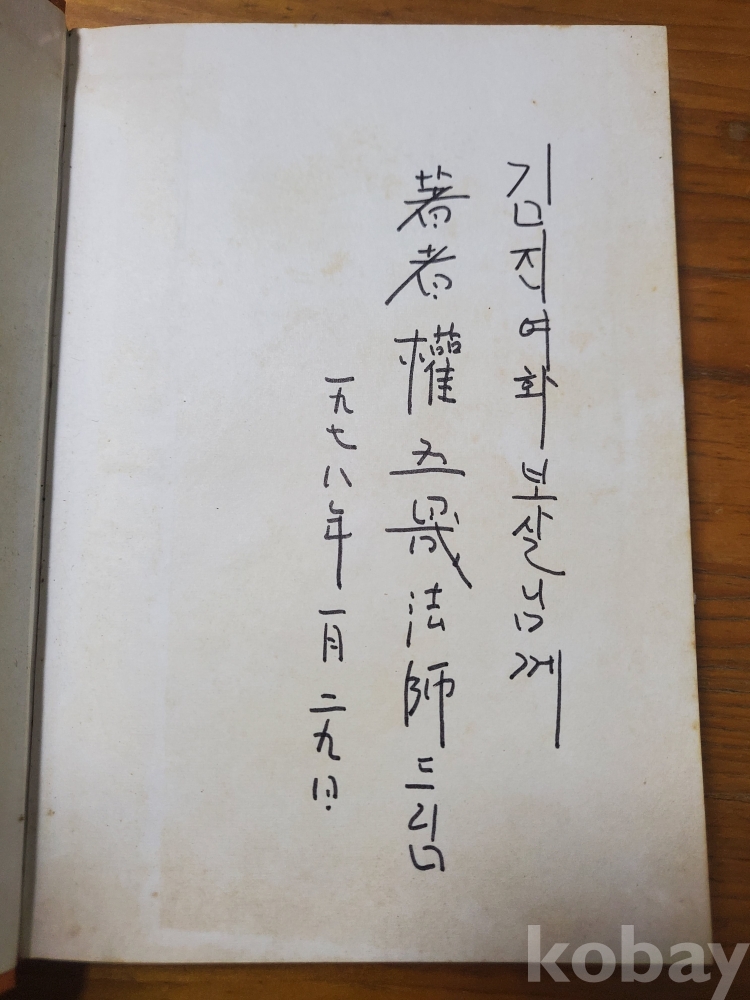 김진여화보살님께
著者 權五晟法師 드림
一九七八年 一月 二九日
kobay